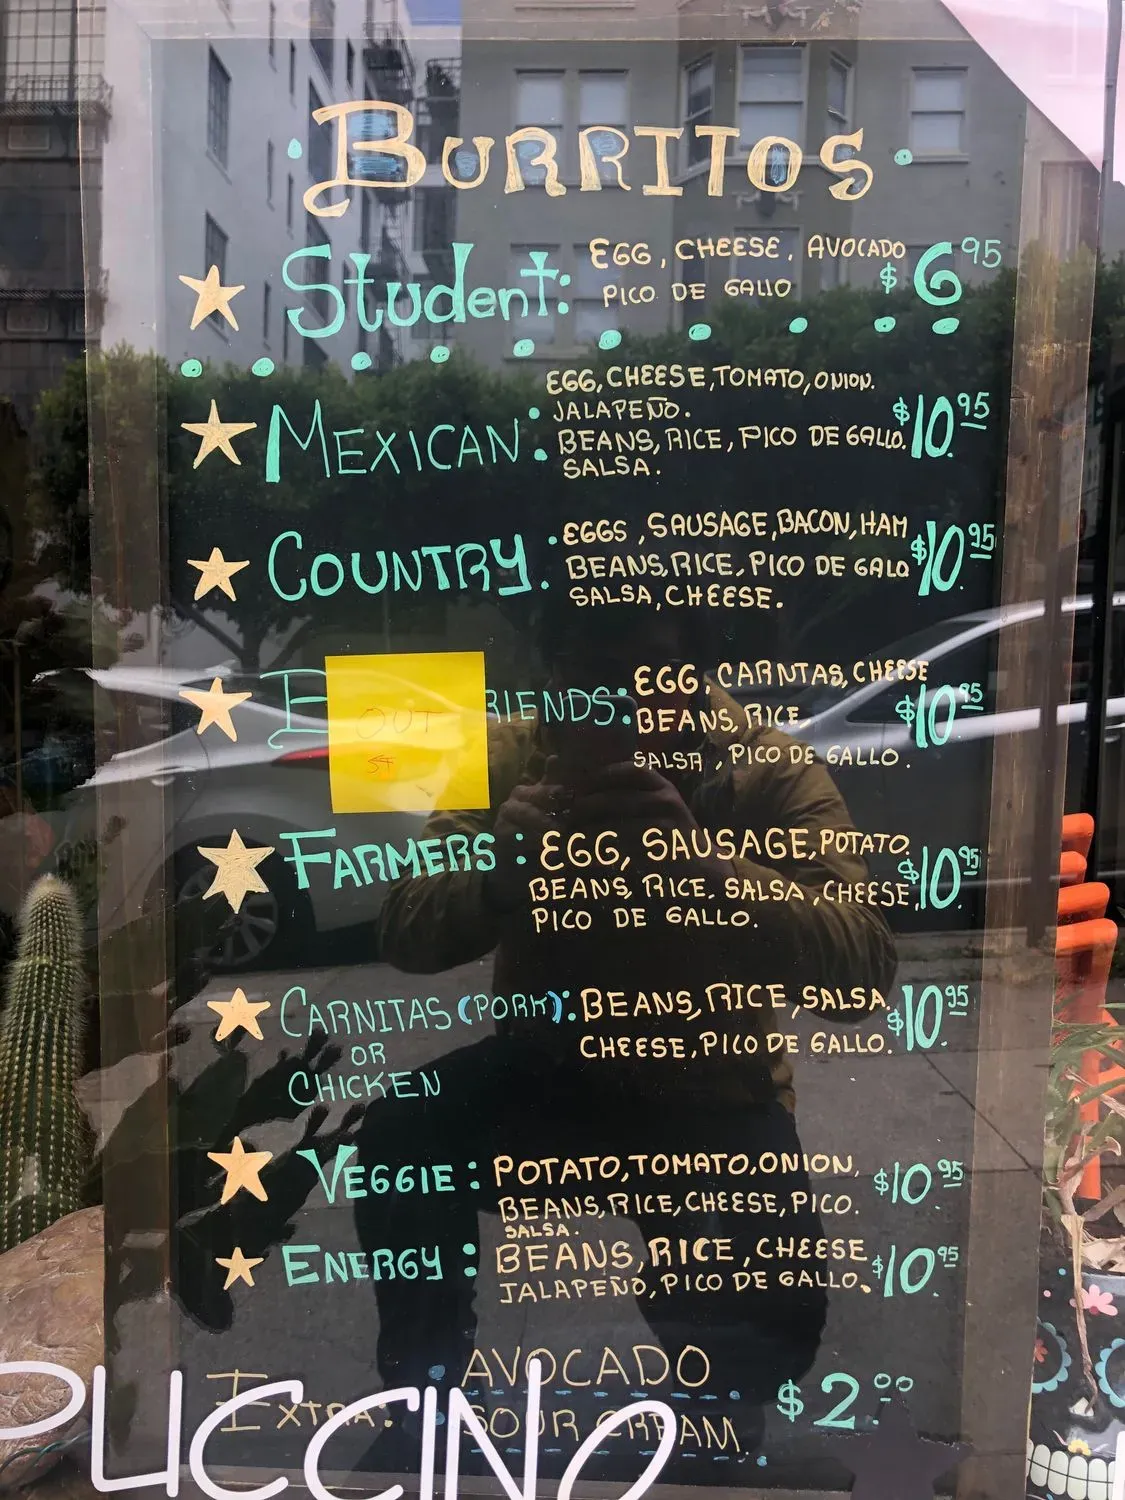 BURRITOS
Student: EGG, CHEESE, AVOCADO $6.95
PICO DE GALLO
EGG, CHEESE, TOMATO, ONION.
JALAPEÑO.
MEXICAN: BEANS, RICE, PICO DE GALLO. $10.95
SALSA.
COUNTRY. EGGS, SAUSAGE, BACON, HAM $10.95
BEANS, RICE, PICO DE GALO
SALSA, CHEESE.
RIENDS: EGG, CARNTAS, CHEESE $10.95
BEANS, RICE,
OUT
SALSA, PICO DE GALLO.
FARMERS: EGG, SAUSAGE, POTATO. $10.95
BEANS, RICE. SALSA, CHEESE,
PICO DE GALLO.
CARNITAS (PORK): BEANS, RICE, SALSA. $10.95
OR CHEESE, PICO DE GALLO.
CHICKEN
VEGGIE: POTATO, TOMATO, ONION, $10.95
BEANS, RICE, CHEESE, PICO.
SALSA.
ENERGY: BEANS, RICE, CHEESE $10.95
JALAPEÑO, PICO DE GALLO.
AVOCADO
EXTRA: SOUR CREAM. $2.00
PUCCINO